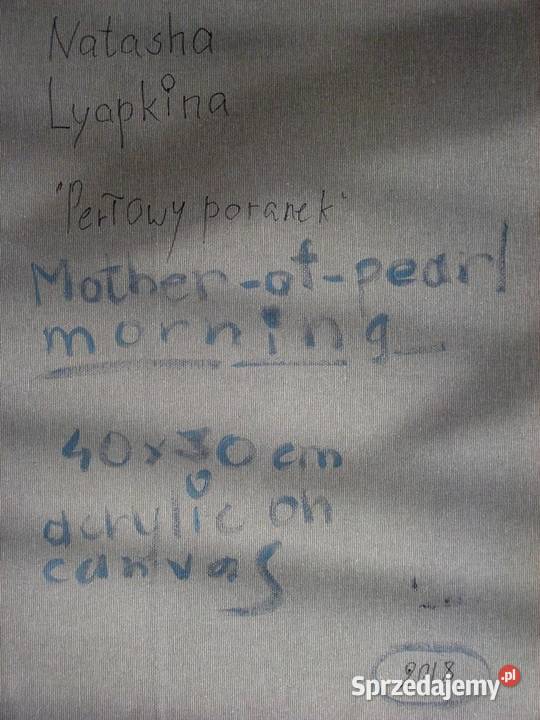 Natasha
Lyapkina
"Perłowy poranek"
Mother-of-pearl
morning
40x30 cm
acrylic on
canvas
2018
Sprzedajemy.pl